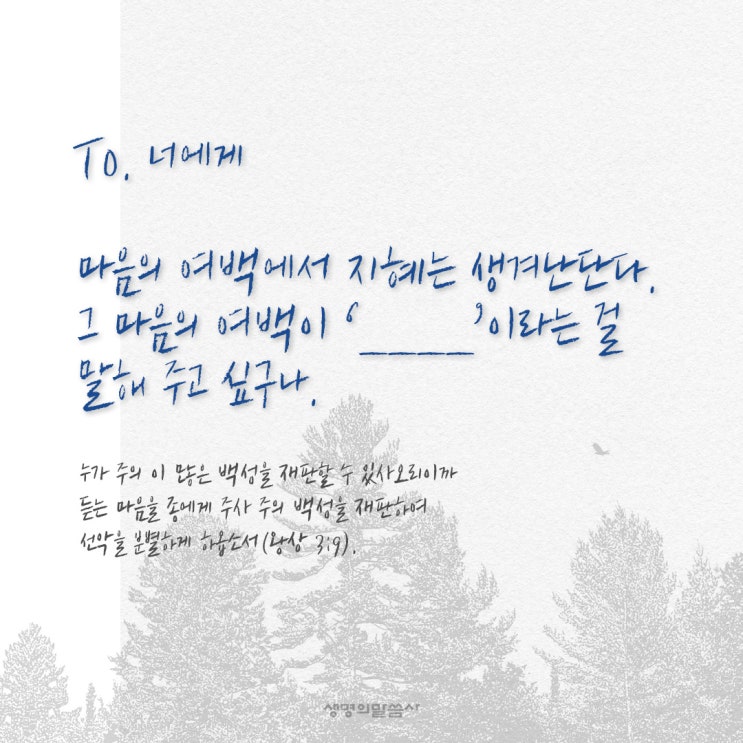 To. 너에게
마음의 여백에서 지혜는 생겨난단다.
그 마음의 여백이 ‘____’이라는 걸
말해 주고 싶구나.
누가 주의 이 많은 백성을 재판할 수 있사오리이까
듣는 마음을 종에게 주사 주의 백성을 재판하여
선악을 분별하게 하옵소서(왕상 3:9).
생명의말씀사